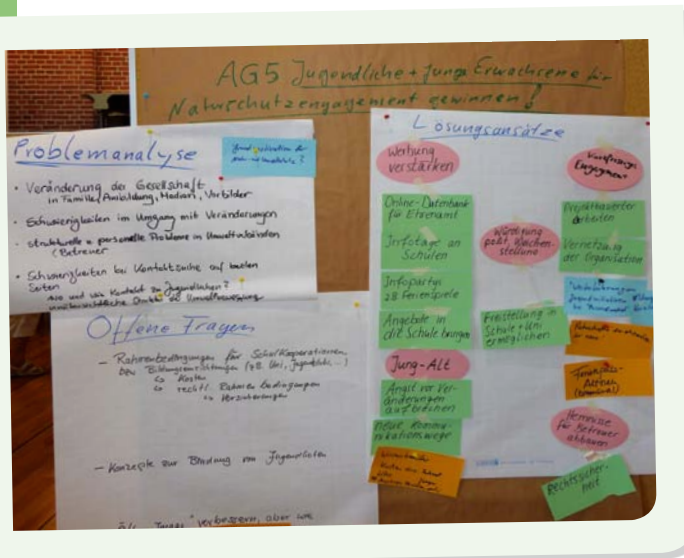 AG5 Jugendliche + junge Erwachsene für
Naturschutzengagement gewinnen!
Problemanalyse
• Veränderung der Gesellschaft
in Familie, Ausbildung, Medien, Vorbilder
• Schwierigkeiten im Umgang mit Veränderungen
• strukturelle + personelle Probleme in
(Betreuer
• Schwierigkeiten bei Kontaktsuche auf beiden
Seiten
wo und wie Kontakt zu Jugendlichen?
Offene Fragen
– Rahmenbedingungen für Schul Kooperationen
bzw. Bildungseinrichtungen (z.B. Uni, Jugendclub ...)
↳ Kosten
↳ rechtl. Rahmenbedingungen
↳ Versicherungen
– Konzepte zur Bindung von Jugendlichen
verbessern, aber wie
Lösungsansätze
Werbung
verstärken
Online-Datenbank
für Ehrenamt
Infotage an
Schulen
Infopartys
z.B Ferienspiele
Angebote in
die Schule bringen
Jung-Alt
Angst vor Ver-
änderungen
aufbrechen
neue Kommu-
nikationswege
Würdigung
polit. Weichen-
stellung
Freistellung in
Schule + Uni
ermöglichen
Engagement
Projektbasiertes
arbeiten
Vernetzung
der Organisation
Hemnisse
für Betreuer
abbauen
Rechtssicher-
heit